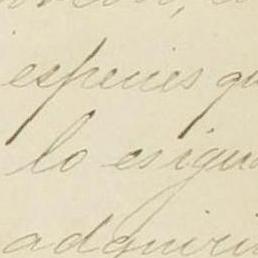 especies qu
lo esigu
adquiri